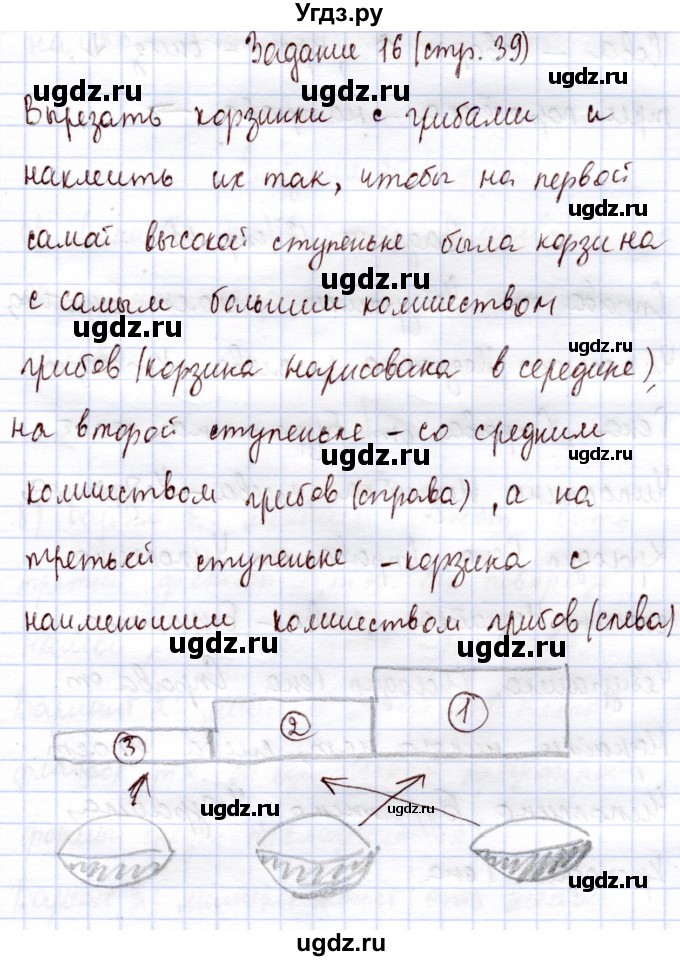 Угдз.ру
Задание 16 (стр. 39)
ugdz.ru ugdz.ru
Вырезать корзинки с грибами и
наклеить их так, чтобы на первой
ugdz.ru
самой высокой ступеньке была корзина
ugdz.ru
с самым большим количеством
ugdz.ru
ugdz.ru
грибов (корзина нарисована в середине),
на второй ступеньке – со средним
ugdz.ru ugdz.ru
количеством грибов (справа), а на
третьей ступеньке – корзина с
наименьшим количеством грибов (слева)
ugdz.ru ugdz.ru
3 2 1
ugdz.ru ugdz.ru
ugdz.ru
ugdz.ru